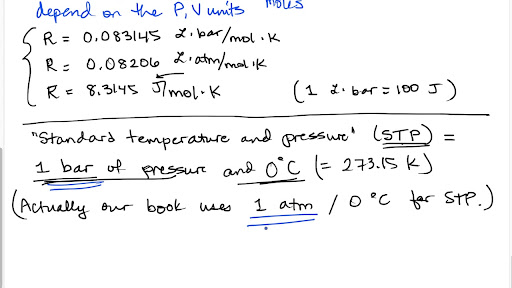 depend on the P, V units moles
R = 0.083145 L·bar/mol·K
R = 0.08206 L·atm/mol·K
R = 8.3145 J/mol·K (1 L·bar = 100 J)
"Standard temperature and pressure" (STP) =
1 bar of pressure and 0°C (= 273.15 K)
(Actually our book uses 1 atm / 0 °C for STP.)